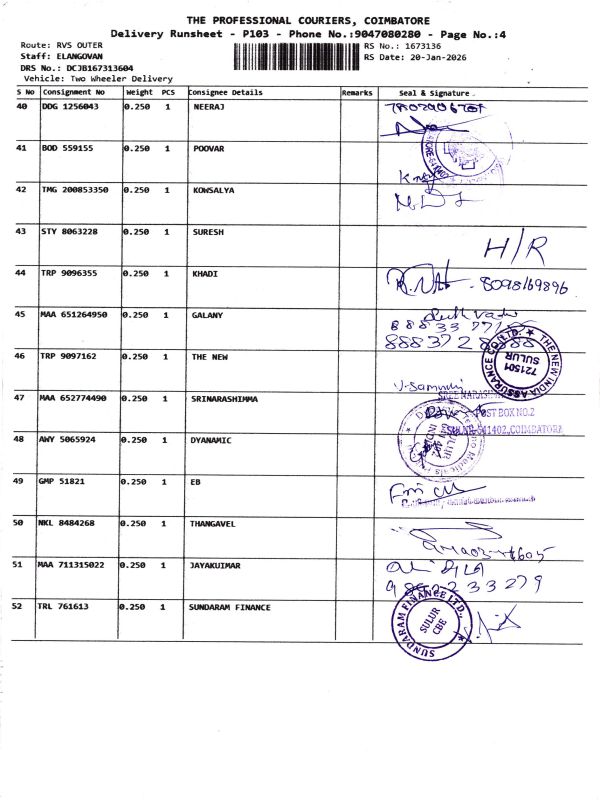 THE PROFESSIONAL COURIERS, COIMBATORE
Delivery Runsheet - P103 - Phone No.:9047080280 - Page No.:4
Route: RVS OUTER
RS No.: 1673136
Staff: ELANGOVAN
RS Date: 20-Jan-2026
DRS No.: DCJB167313604
Vehicle: Two Wheeler Delivery
S No Consignment No Weight PCS Consignee Details Remarks Seal & Signature
40 DDG 1256043 0.250 1 NEERAJ
41 BOD 559155 0.250 1 POOVAR
42 TMG 200853350 0.250 1 KOWSALYA
43 STY 8063228 0.250 1 SURESH H/R
44 TRP 9096355 0.250 1 KHADI 8098169896
45 MAA 651264950 0.250 1 GALANY
46 TRP 9097162 0.250 1 THE NEW
THE NEW INDIA ASSURANCE CO. LTD. ★ 721501 SULUR
47 MAA 652774490 0.250 1 SRINARASHIMMA
POST BOX NO.2
SULUR-641402, COIMBATORE
48 AWY 5065924 0.250 1 DYANAMIC
49 GMP 51821 0.250 1 EB
50 NKL 8484268 0.250 1 THANGAVEL
51 MAA 711315022 0.250 1 JAYAKUIMAR
52 TRL 761613 0.250 1 SUNDARAM FINANCE
SUNDARAM FINANCE LTD., ★ SULUR CBE